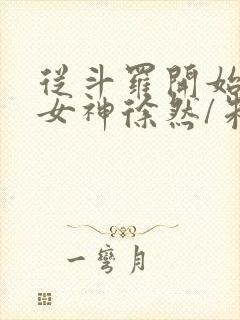 從斗羅開始
女神徐然/朱
一彎月